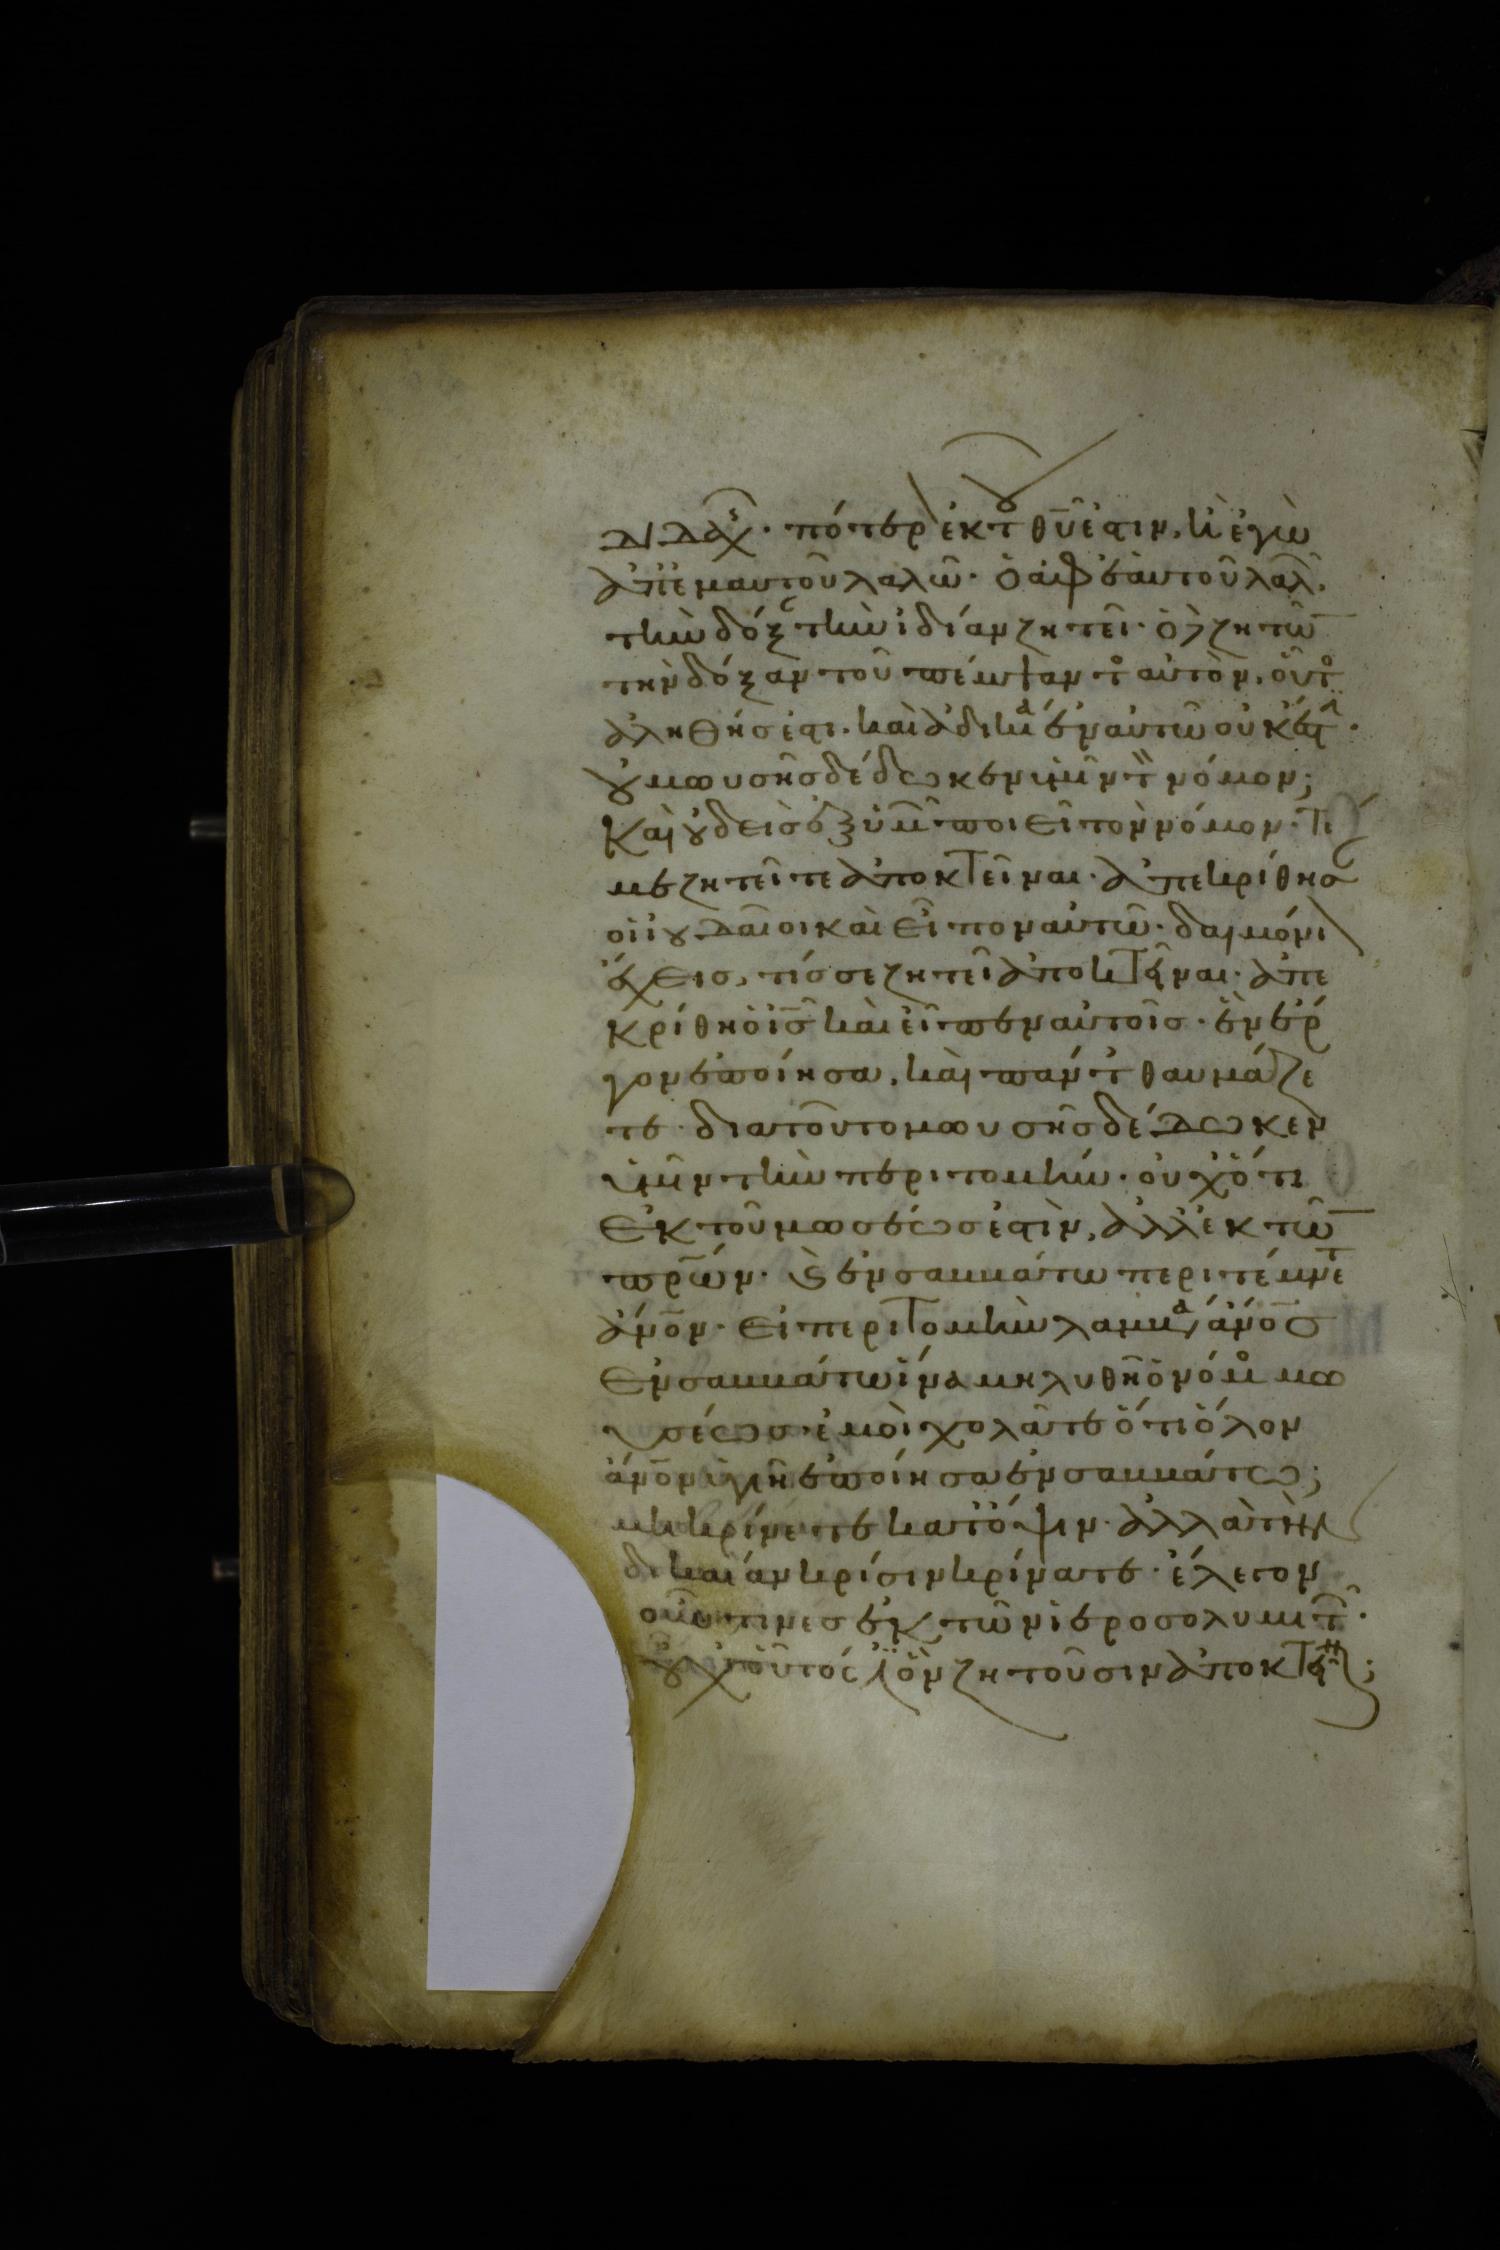 διδαχ· πότερ ἐκ τ θῡ ἐστιν, ἢ ἐγὼ
ἀπ ἐμαυτοῦ λαλῶ· ὁ ἀφ ἑαυτοῦ λαλ,
τὴν δόξ τὴν ἰδίαν ζητεῖ· ὁ δ ζητῶ
τὴν δόξαν τοῦ πέμψαντο αὐτὸν, οὗτο
ἀληθήσ ἐστι. καὶ ἀδικία ἐν αὐτῶ οὐκ ἔστι·
οὐ μωυσῆσ δέδωκεν ὑμῖν τ νόμον;
καὶ οὐδεὶσ ἐξ ὑμ ποιεῖ τὸν νόμον· τί
με ζητεῖτε ἀποκτεῖναι· ἀπεκρίθησα
οἱ ἰουδαῖοι καὶ εἶπον αὐτῶ· δαιμόνι
ἔχεισ, τίσ σε ζητεῖ ἀποκτεῖναι· ἀπε
κρίθη ὁ ις̄ καὶ εἶπεν αὐτοῖσ· ἓν ἔρ
γον ἐποίησα, καὶ πάντ θαυμάζε
τε· διατοῦτο μωυσῆσ δέδωκεν
ὑμῖν τὴν περιτομήν· οὐχ ὅτι
ἐκ τοῦ μωσέωσ ἐστὶν, ἀλλ ἐκ τῶ
πρ̄ων· καὶ ἐν σαββάτω περιτέμνετ
ἄνο̄ν· εἰ περιτομὴν λαμβά ἄνο̄σ
ἐν σαββάτω ἵνα μὴ λυθῆ ὁ νόμο μω
υσέωσ, ἐμοὶ χολᾶτε ὅτι ὅλον
ἄνο̄ν ὑγιῆ ἐποίησα ἐν σαββάτω;
μὴ κρίνετε κατ ὄψιν· ἀλλὰ τὴν
δικαίαν κρίσιν κρίνατε· ἔλεγον
οὖν τινεσ ἐκ τῶν ἱεροσολυμιτ·
οὐχ οὗτόσ ἐστιν ὃν ζητοῦσιν ἀποκτεῖναι;